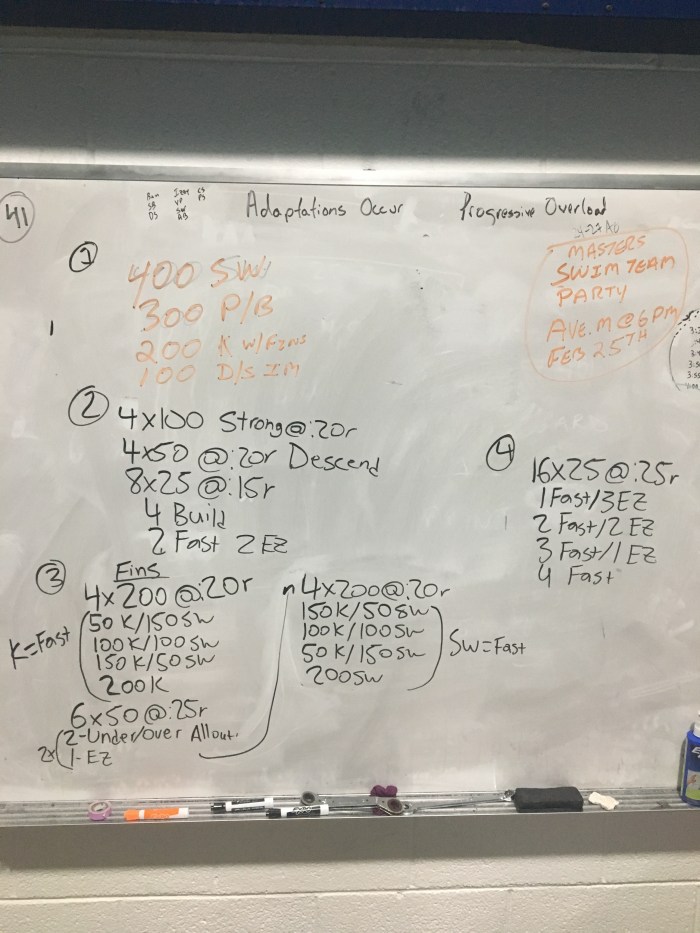 41
Adaptations Occur
Progressive Overload
1
400 SW
300 P/B
200 K W/FINS
100 D/S IM
MASTERS
SWIM TEAM
PARTY
AVE. M @ 6 PM
FEB 25TH
2
4x100 Strong@:20r
4x50 @:20r Descend
8x25 @:15r
4 Build
2 Fast 2 EZ
3
Fins
4x200 @:20r
K=Fast
50 K/150 SW
100K/100 SW
150 K/50 SW
200K
6x50@:25r
2x
2-Under/Over Allout.
1-EZ
4x200@:20r
150K/50SW
100K/100SW
50K/150SW
200SW
SW=Fast
4
16x25 @:25r
1 Fast/3EZ
2 Fast/2 EZ
3 Fast/1 EZ
4 Fast